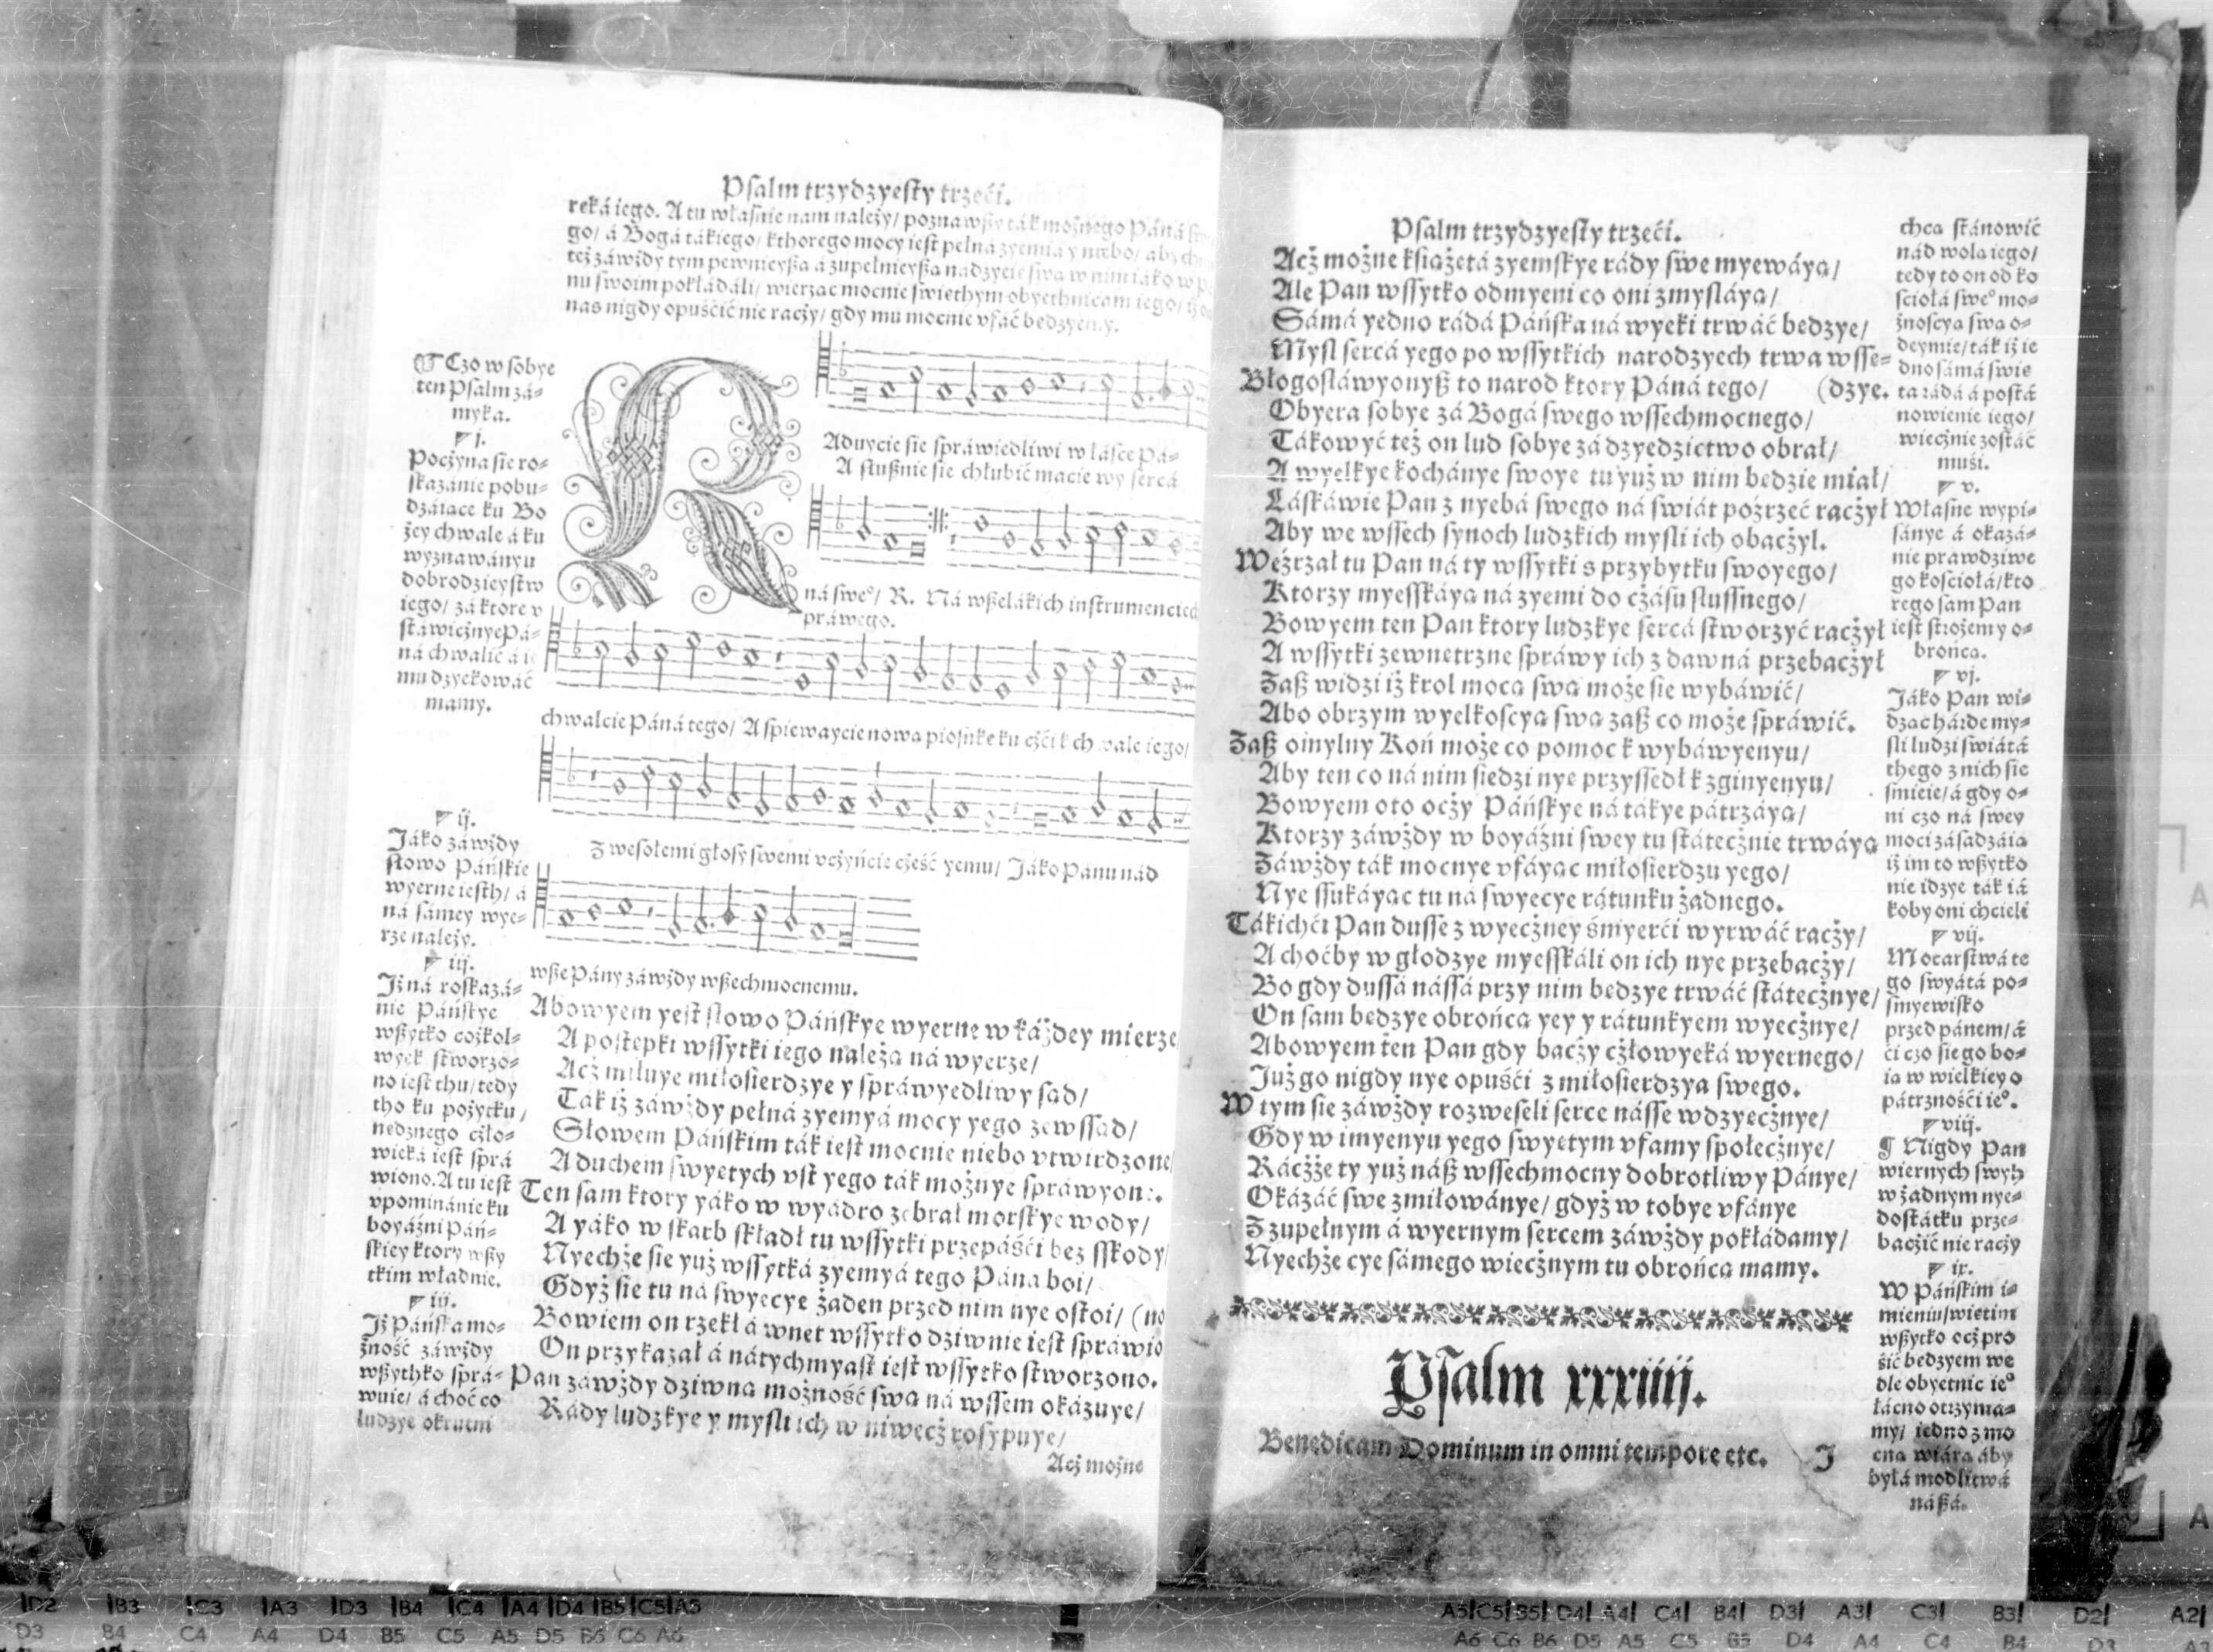 Psalm trzydzyesty trzeći.
reką iego. A tu własnie nam należy/ poznawszy ták możnego Páná
go/ á Bogá tákiego/ kthorego mocy iest pełna zyemia y niebo/ aby
też záwżdy tym pewnieyszą á zupełnieyszą nádzyeię swą w nim iáko w
nu swoim pokłádáli/ wierząc mocnie swiethym obyethnicam iego/
nas nigdy opuśćić nie raczy/ gdy mu mocnie vfáć będzyemy.
Czo w sobye
ten Psalm zá-
myka.
j.
Poczyna sie ro-
skazánie pobu-
dzáiące ku Bo
żey chwale á ku
wyznawányu
dobrodzieystw
iego/ zá ktore v
stáwicżnye Pá-
ná chwalić á ie
mu dzyękowáć
mamy.
ij.
Jáko záwżdy
słowo Páńskie
wyerne iesth/ á
ná sámey wye-
rze należy.
iij.
Jż ná roskazá-
nie Páńskye
wszytko cożkol-
wyek stworzo-
no iest thu/ tedy
tho ku pożytku/
nędznego czło-
wieká iest sprá
wiono. A tu iest
vpominánie ku
boyáźni Páń-
skiey ktory wszy
tkim władnie.
iiij.
Jż Páńska mo-
żność záwżdy
wszythko sprá-
wuie/ á choć co
ludzye okrutni
Aduycie sie spráwiedliwi w łásce Pá-
A słusznie sie chłubić macie wy sercá
ná swe°/ R. Ná wszelákich instrumenciech
práwego.
chwalcie Páná tego/ A spiewaycie nową piosnkę ku czći k chwale iego/
Z wesołemi głosy swemi vczyńcie cześć yemu/ Jáko Pánu nád
wsze Pány záwżdy wszechmocnemu.
Abowyem yest słowo Páńskye wyerne w káżdey mierze
A postępki wssytki iego należą ná wyerze/
Acż miłuye miłosierdzye y spráwyedliwy sąd/
Ták iż záwżdy pełná zyemyá mocy yego zewssąd/
Słowem Páńskim ták iest mocnie niebo vtwirdzone/
A duchem swyętych vst yego ták możnye spráwyon:.
Ten sam ktory yáko w wyádro zebrał morskye wody/
A yáko w skarb skłádł tu wssytki przepáśći bez sskody/
Nyechże sie yuż wssytká zyemyá tego Páná boi/
Gdyż sie tu ná swyecye żaden przed nim nye ostoi/ (no
Bowiem on rzekł á wnet wssytko dziwnie iest spráwio
On przykazał á nátychmyast iest wssytko stworzono.
Pan záwżdy dziwną możność swą ná wssem okázuye/
Rády ludzkye y mysli ich w niwecż rosypuye/
Acż możne
Psalm trzydzyesty trzeći.
Acż możne książętá zyemskye rády swe myewáyą/
Ale Pan wssytko odmyeni co oni zmysláyą/
Sámá yedno rádá Páńska ná wyeki trwáć będzye/
Mysl sercá yego po wssytkich narodzyech trwa wsse-
Błogosláwyonysz to narod ktory Páná tego/ (dzye.
Obyera sobye zá Bogá swego wssechmocnego/
Tákowyć też on lud sobye zá dzyedzictwo obrał/
A wyelkye kochánye swoye tu yuż w nim będzie miał/
Láskáwie Pan z nyebá swego ná swiát poźrzeć racżył
Aby we wssech synoch ludzkich mysli ich obacżyl.
Weźrzał tu Pan ná ty wssytki s przybytku swoyego/
Ktorzy myesskáyą ná zyemi do cżásu slussnego/
Bowyem ten Pan ktory ludzkye sercá stworzyć racżył
A wssytki zewnętrzne spráwy ich z dawná przebacżył
Zasz widzi iż krol mocą swą może sie wybáwić/
Abo obrzym wyelkoscyą swą zasz co może spráwić.
Zasz omylny Koń może co pomoc k wybáwyenyu/
Aby ten co ná nim siedzi nye przyssedł k zginyenyu/
Bowyem oto ocży Páńskye ná tákye pátrzáyą/
Ktorzy záwżdy w boyáźni swey tu státecżnie trwáyą
Záwżdy ták mocnye vfáyąc miłosierdzu yego/
Nye ssukáyąc tu ná swyecye rátunku żadnego.
Tákichći Pan dusse z wyecżney śmyerći wyrwáć racży/
A choćby w głodzye myesskáli on ich nye przebacży/
Bo gdy dussá nássá przy nim będzye trwáć státecżnye/
On sam będzye obrońcą yey y rátunkyem wyecżnye/
Abowyem ten Pan gdy bacży cżłowyeká wyernego/
Już go nigdy nye opuśći z miłosierdzya swego.
W tym sie záwżdy rozweseli serce násse wdzyecżnye/
Gdy w imyenyu yego swyętym vfamy społecżnye/
Rácżże ty yuż nász wssechmocny dobrotliwy Pánye/
Okázáć swe zmiłowánye/ gdyż w tobye vfánye
Z zupełnym á wyernym sercem záwżdy pokłádamy/
Nyechże cye sámego wiecżnym tu obrońcą mamy.
Psalm xxxiiij.
Benedicam Dominum in omni tempore etc. J
chcą stánowić
nád wolą iego/
tedy to on od ko
sciołá swe° mo-
żnoscyą swą o-
deymie/ ták iż ie
dno sámá swię
ta rádá á postá
nowienie iego/
wiecżnie zostáć
muśi.
v.
Własne wypi-
sánye á okazá-
nie prawdziwe
go kosciołá/ kto
rego sam Pan
iest strożem y o-
brońcą.
vj.
Jáko Pan wi-
dząc hárde my-
sli ludzi swiátá
thego z nich sie
smieie/ á gdy o-
ni czo ná swey
moci zásadzáią
iż im to wszytko
nie idzye ták iá
koby oni chcieli
vij.
Mocarstwá te
go swyátá po-
smyewisko
przed pánem/ á
ći czo sie go bo-
ią w wielkiey o
pátrznośći ie°.
viij.
¶ Nigdy Pan
wiernych swych
w żadnym nye-
dostátku prze-
bacżić nie racży
ix.
W Páńskim i-
mieniu swiętim
wszytko ocż pro
śić będzyem we
dle obyetnic ie°
łácno otrzyma-
my/ iedno z mo
cną wiárą áby
byłá modlitwá
nászá.